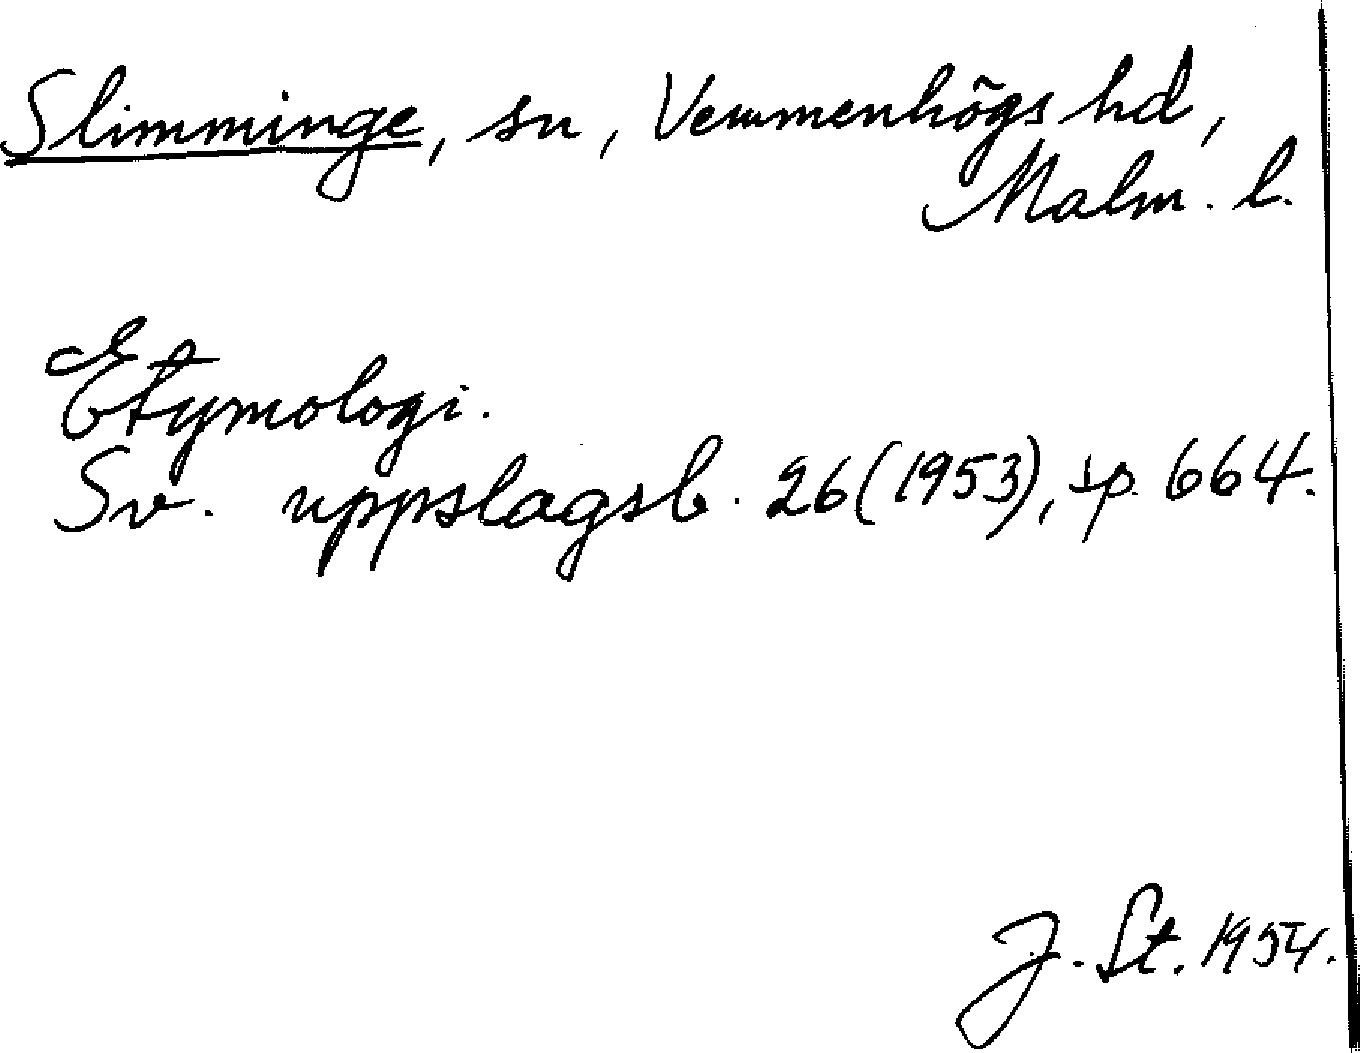 Slimminge, sn, Vemmenhögs hd,
Malm. l.
Etymologi.
Sv. uppslagsb. 26 (1953), sp. 664.
J. St. 1954.